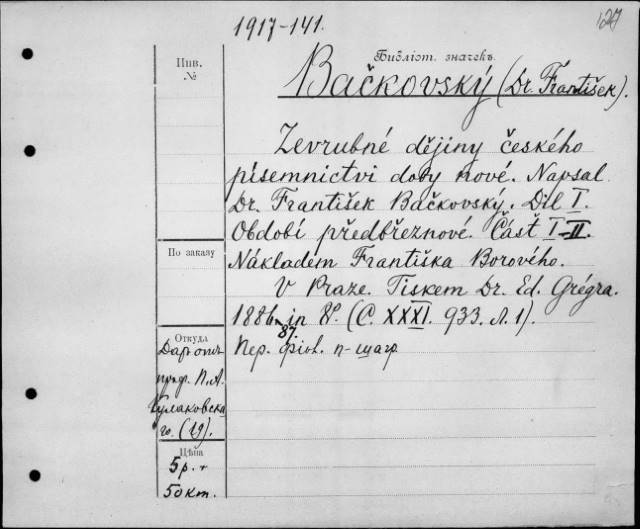 1917-141.
127
Инв.
№
Библіот. значекъ.
Bačkovský (Dr. František).
Zevrubné dějiny českého
písemnictvi doby nové. Napsal
Dr. František Bačkovský. Díl I.
Období předbřeznové. Část I-II.
Nákladem Františka Borového.
V Praze. Tiskem Dr. Ed. Grégra.
1886-87. in 8º. (C. XXXI. 933. л. 1).
Пер. фіол. п-шагр.
По заказу
Откуда
Даръ отъ
проф. П. А.
Кулаковска
го. (19).
Цѣна
5 р. +
50 кт.